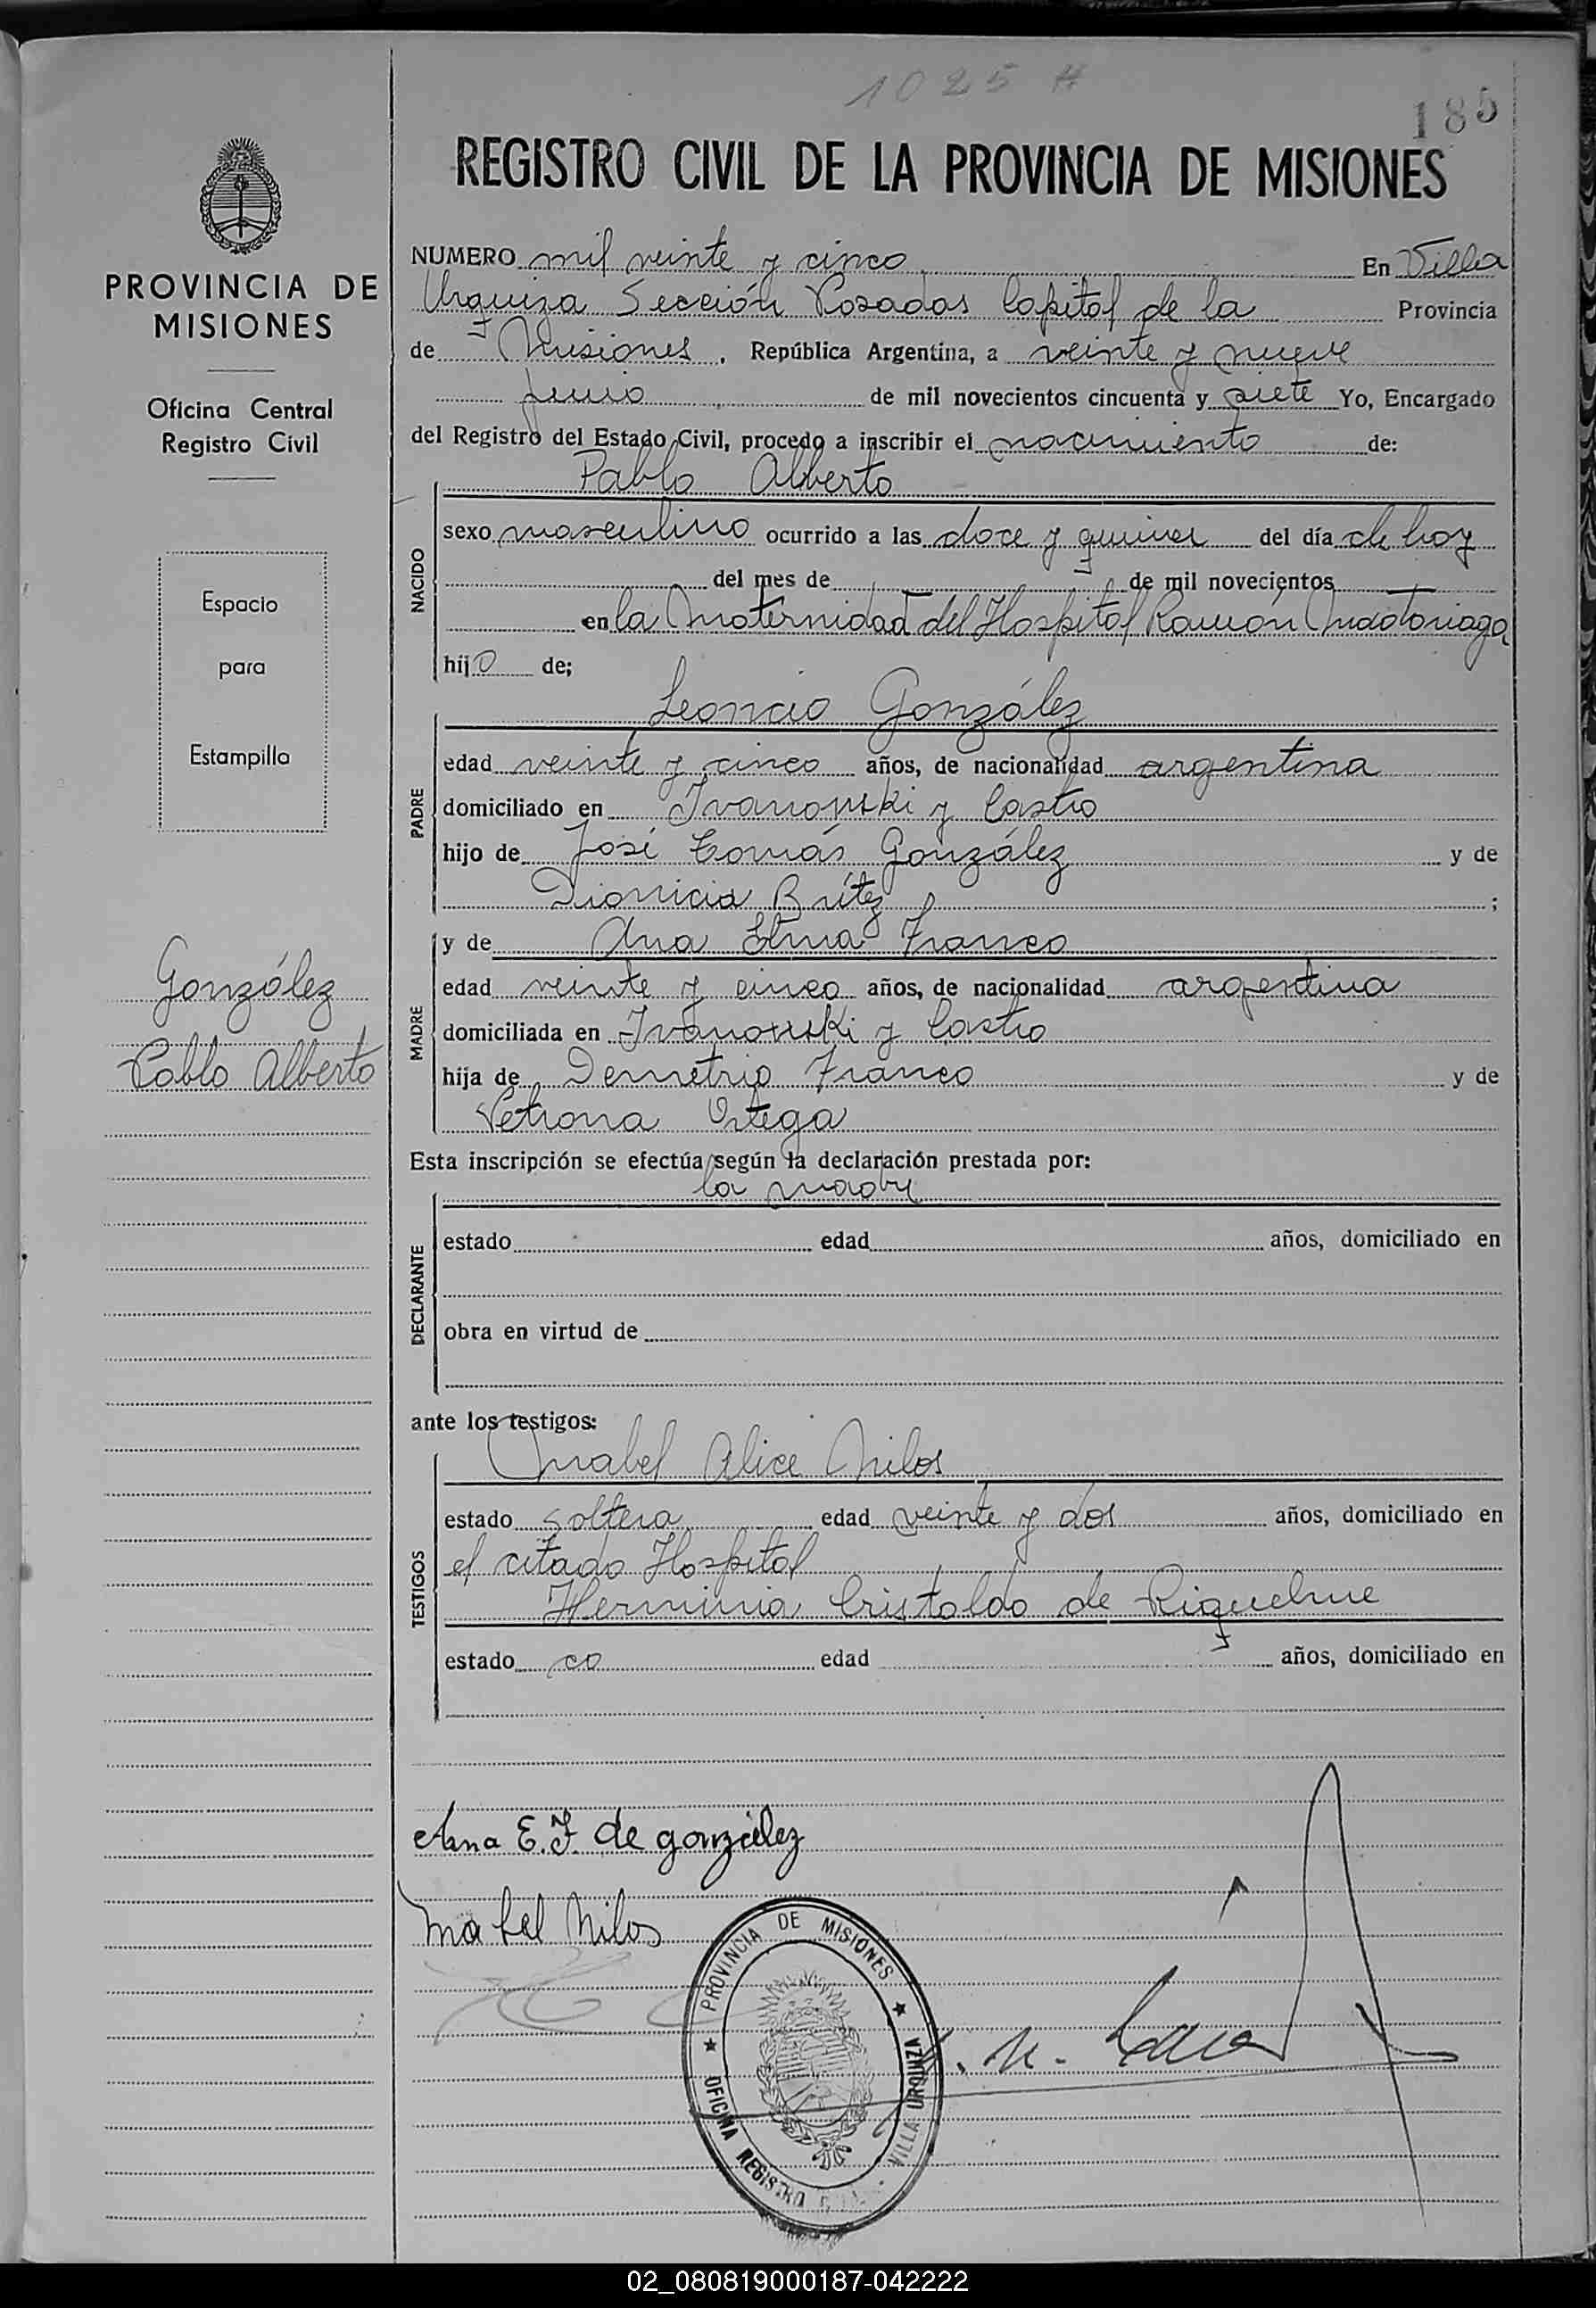 1025 H
185
REGISTRO CIVIL DE LA PROVINCIA DE MISIONES
PROVINCIA DE
MISIONES
Oficina Central
Registro Civil
Espacio
para
Estampilla
González
Pablo Alberto
NUMERO mil veinte y cinco En Villa
Urquiza Sección Posadas Capital de la Provincia
de Misiones, República Argentina, a veinte y nueve
junio de mil novecientos cincuenta y siete Yo, Encargado
del Registro del Estado Civil, procedo a inscribir el nacimiento de:
Pablo Alberto
NACIDO
sexo masculino ocurrido a las doce y quince del día de hoy
del mes de de mil novecientos
en la Maternidad del Hospital Ramón Madariaga
hijo de;
Leoncio González
PADRE
edad veinte y cinco años, de nacionalidad argentina
domiciliado en Ivanowski y Castro
hijo de José Tomás González y de
Dionicia Brítez ;
y de Ana Elma Franco
MADRE
edad veinte y cinco años, de nacionalidad argentina
domiciliada en Ivanowski y Castro
hija de Demetrio Franco y de
Petrona Ortega
Esta inscripción se efectúa según la declaración prestada por:
la madre
DECLARANTE
estado edad años, domiciliado en
obra en virtud de
ante los testigos:
Mabel Alice Milos
TESTIGOS
estado soltera edad veinte y dos años, domiciliado en
el citado Hospital
Herminia Cristaldo de Riquelme
estado ca edad años, domiciliado en
Ana E. F. de gonzález
Mabel Milos
PROVINCIA DE MISIONES
OFICINA REGISTRO VILLA URQUIZA
02_080819000187-042222